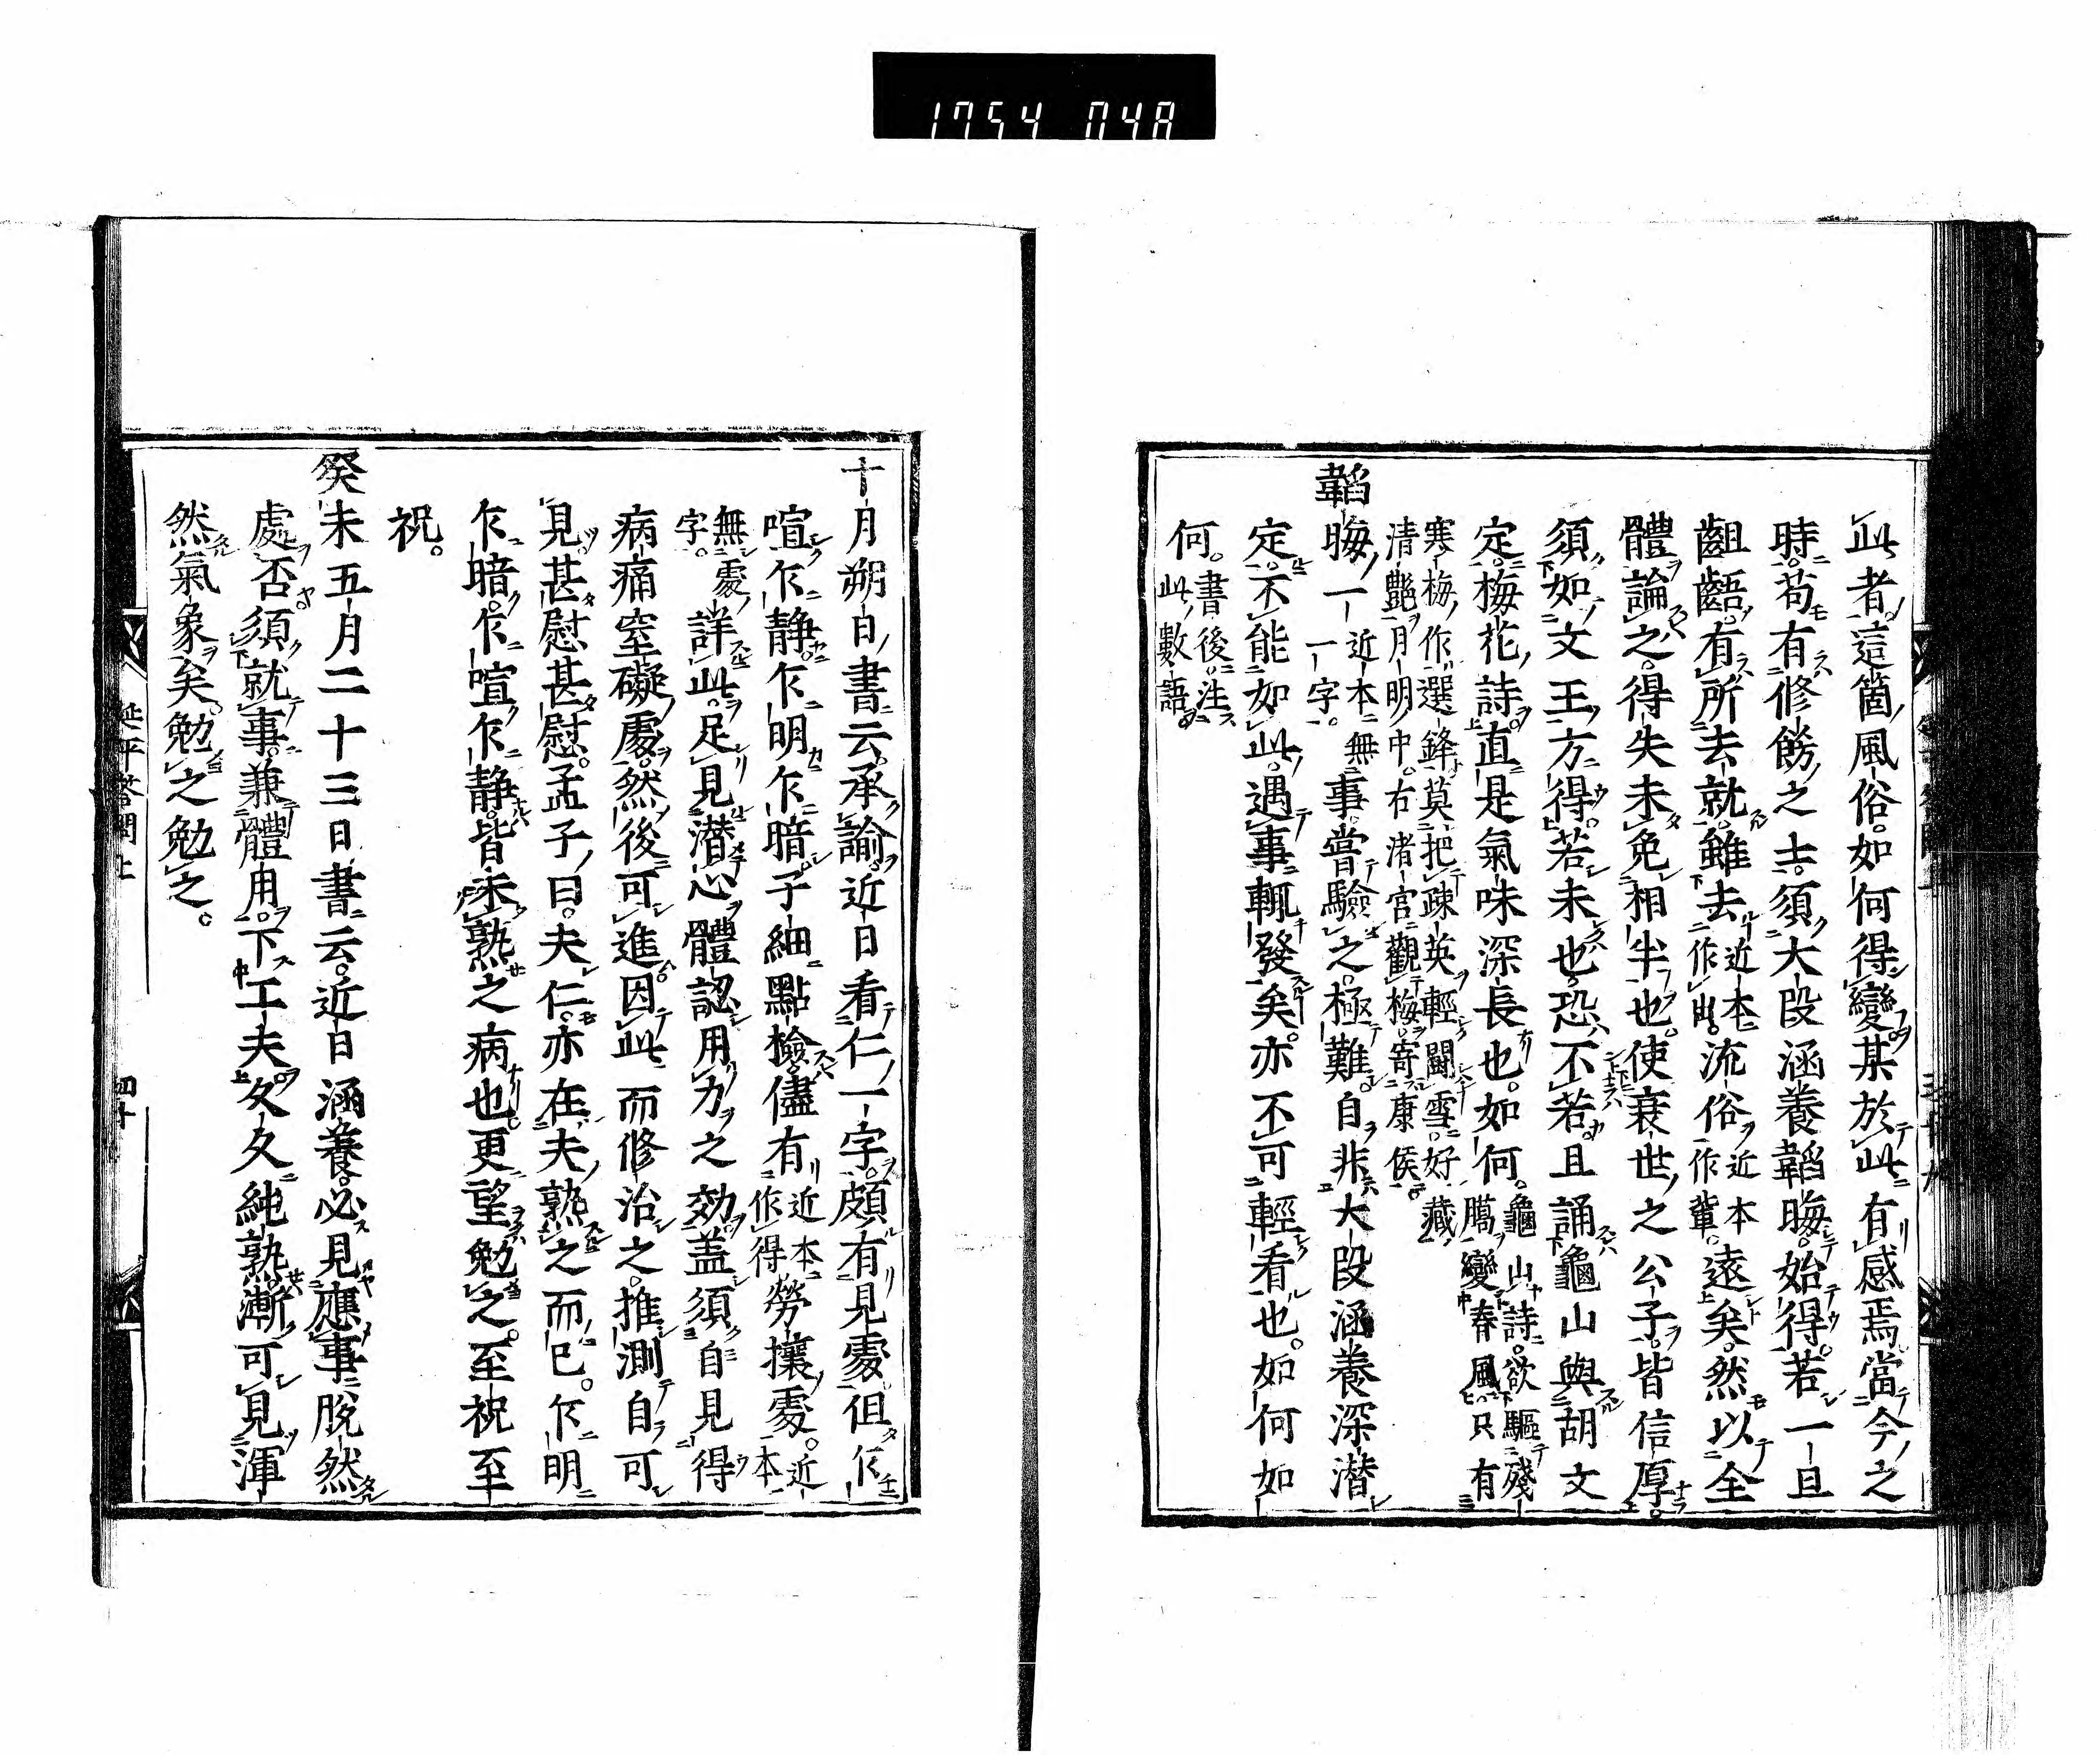 1754 048
此者這箇風俗。如何得變。某於此有感焉。當今之
時。苟有修飭之士。須大段涵養韜晦始得。若一旦
齟齬。有所去就。雖去近本作出。流俗近本作輩。遠矣。然以全
體論之。得失未免相半也。使衰世之公子。皆信厚。
須如文王方得。若未也。恐不若且誦龜山與胡文
定梅花詩。直是氣味深長也。如何。龜山詩。欲驅殘臈變春風。只有
寒梅作選鋒。莫把疎英輕鬬雪。好藏清艷月明中。右渚宮觀梅寄康侯。
韜晦一近本無一字。事。嘗驗之。極難。自非大段涵養深潜
定不能如此。遇事輒發矣。亦不可輕看也。如何如
何。書後注此數語。
十月朔日書云。承諭近日看仁一字。頗有見處。但乍
喧乍靜。乍明乍暗。子細點檢。儘有近本作得勞攘處。近本
無處字。詳此。足見潜心體認用力之効。盖須自見得
病痛窒礙處。然後可進。因此而修治之。推測自可
見。甚慰甚慰。孟子曰。夫仁。亦在夫熟之而已。乍明
乍暗。乍喧乍靜。皆未熟之病也。更望勉之。至祝至
祝。
癸未五月二十三日書云。近日涵養。必見應事脫然
處否。須就事。兼體用。下工夫。久久純熟。漸可見渾
然氣象矣。勉之勉之。
延平答問上
四十